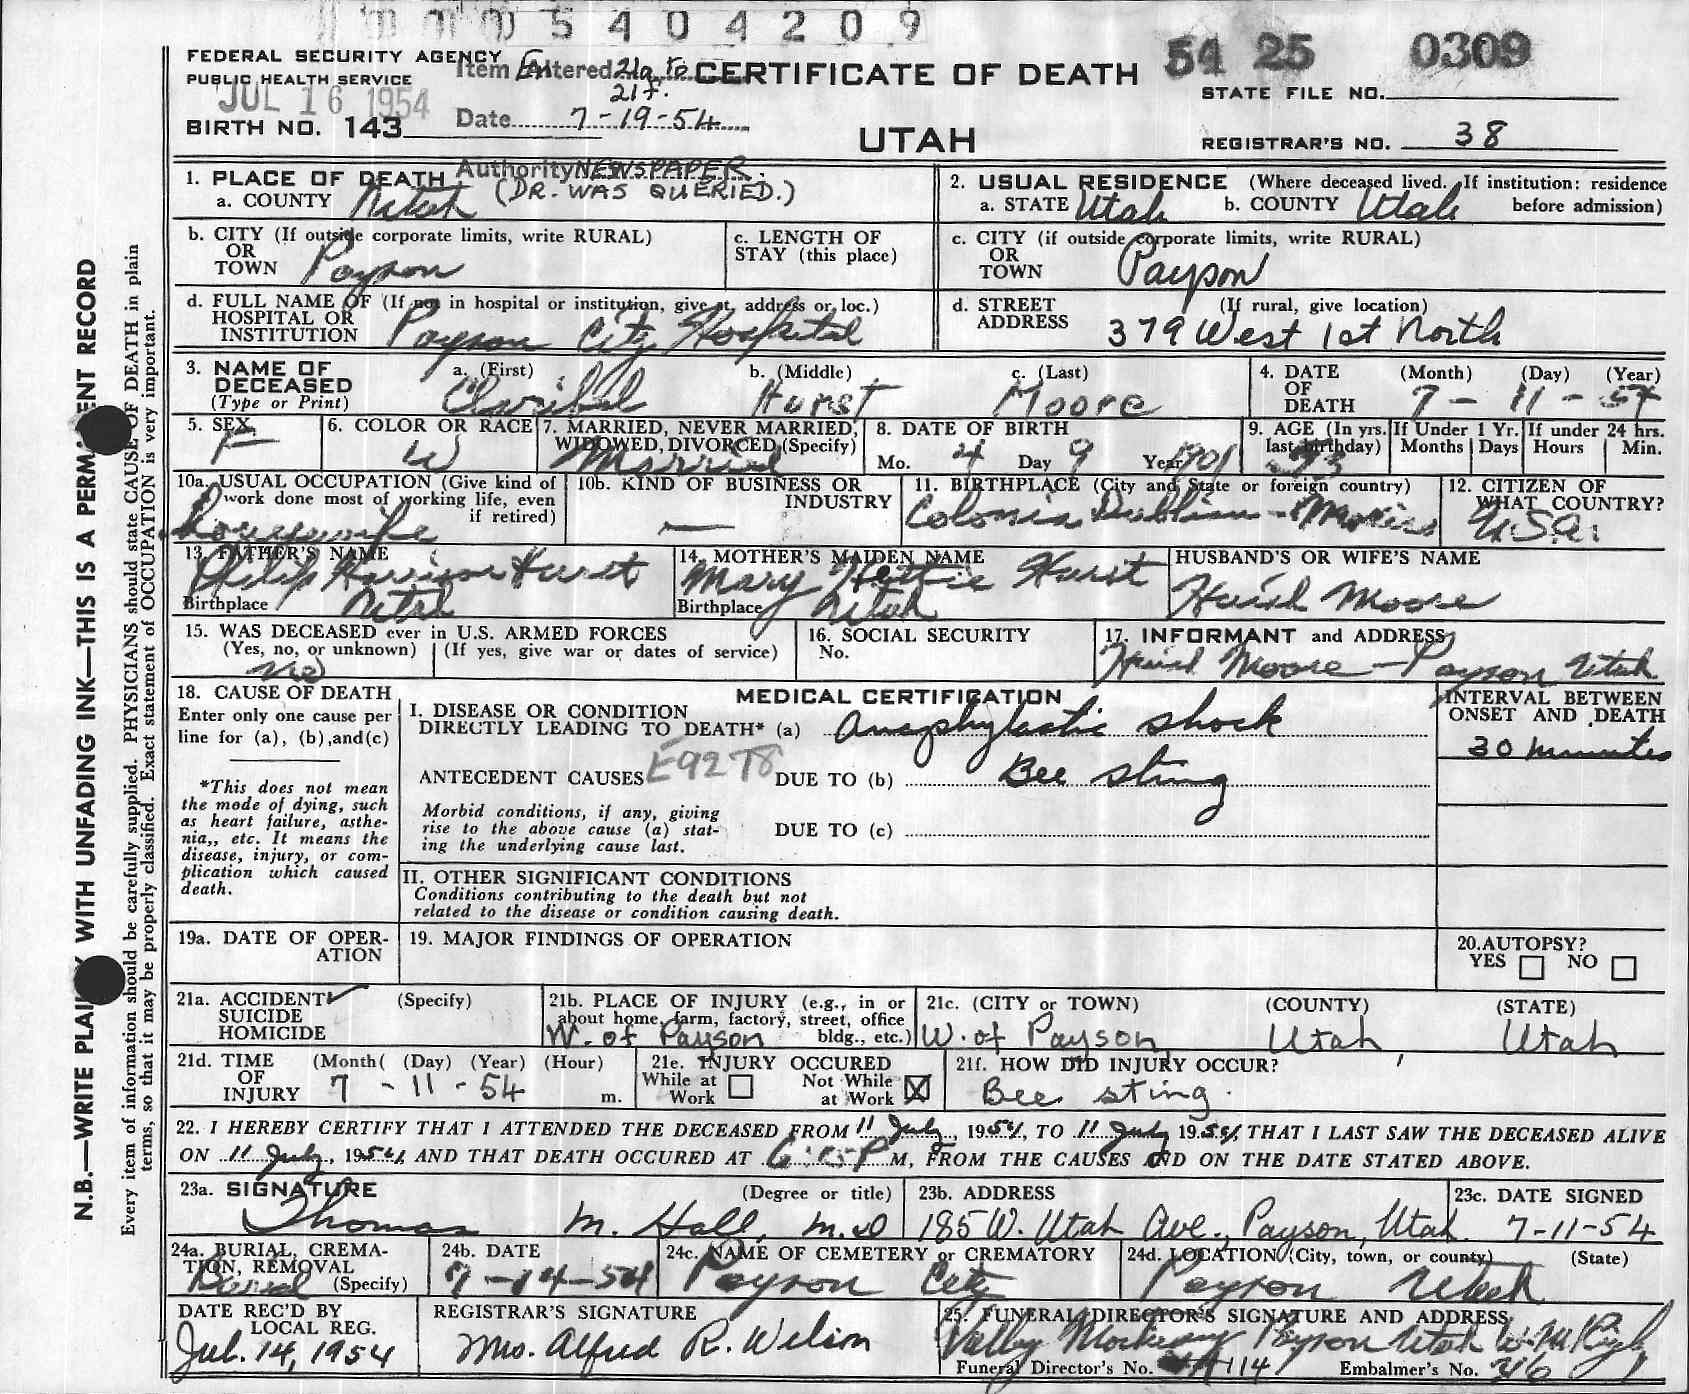 5404209
FEDERAL SECURITY AGENCY
PUBLIC HEALTH SERVICE
JUL 16 1954
Item Entered 21a to
21f.
Date 7-19-54
Authority NEWSPAPER.
(DR. WAS QUERIED.)
CERTIFICATE OF DEATH
UTAH
54 25 0309
STATE FILE NO.
BIRTH NO. 143
REGISTRAR'S NO. 38
N.B.—WRITE PLAINLY WITH UNFADING INK—THIS IS A PERMANENT RECORD
Every item of information should be carefully supplied. PHYSICIANS should state CAUSE OF DEATH in plain
terms, so that it may be properly classified. Exact statement of OCCUPATION is very important.
1. PLACE OF DEATH
a. COUNTY Utah
2. USUAL RESIDENCE (Where deceased lived. If institution: residence
a. STATE Utah b. COUNTY Utah before admission)
b. CITY (If outside corporate limits, write RURAL)
OR
TOWN Payson
c. LENGTH OF
STAY (this place)
c. CITY (if outside corporate limits, write RURAL)
OR
TOWN Payson
d. FULL NAME OF (If not in hospital or institution, give st. address or loc.)
HOSPITAL OR
INSTITUTION Payson City Hospital
d. STREET (If rural, give location)
ADDRESS 379 West 1st North
3. NAME OF
DECEASED
(Type or Print)
a. (First) Claribel
b. (Middle) Hurst
c. (Last) Moore
4. DATE
OF
DEATH
(Month) (Day) (Year)
7 - 11 - 54
5. SEX
F
6. COLOR OR RACE
W
7. MARRIED, NEVER MARRIED,
WIDOWED, DIVORCED (Specify)
Married
8. DATE OF BIRTH
Mo. 4 Day 9 Year 1901
9. AGE (In yrs.
last birthday)
53
If Under 1 Yr.
Months Days
If under 24 hrs.
Hours Min.
10a. USUAL OCCUPATION (Give kind of
work done most of working life, even
if retired)
housewife
10b. KIND OF BUSINESS OR
INDUSTRY
—
11. BIRTHPLACE (City and State or foreign country)
Colonia Dublan - Mexico
12. CITIZEN OF
WHAT COUNTRY?
U.S.A.
13. FATHER'S NAME
Philip Harrison Hurst
Birthplace Utah
14. MOTHER'S MAIDEN NAME
Mary Hettie Hurst
Birthplace Utah
HUSBAND'S OR WIFE'S NAME
Moore
15. WAS DECEASED ever in U.S. ARMED FORCES
(Yes, no, or unknown) (If yes, give war or dates of service)
no
16. SOCIAL SECURITY
No.
17. INFORMANT and ADDRESS
Moore - Payson Utah
18. CAUSE OF DEATH
Enter only one cause per
line for (a), (b), and (c)
*This does not mean
the mode of dying, such
as heart failure, asthe-
nia,, etc. It means the
disease, injury, or com-
plication which caused
death.
MEDICAL CERTIFICATION
I. DISEASE OR CONDITION
DIRECTLY LEADING TO DEATH* (a) Anaphylactic shock
INTERVAL BETWEEN
ONSET AND DEATH
30 minutes
ANTECEDENT CAUSES E92T8 DUE TO (b) Bee sting
Morbid conditions, if any, giving
rise to the above cause (a) stat-
ing the underlying cause last.
DUE TO (c)
II. OTHER SIGNIFICANT CONDITIONS
Conditions contributing to the death but not
related to the disease or condition causing death.
19a. DATE OF OPER-
ATION
19. MAJOR FINDINGS OF OPERATION
20. AUTOPSY?
YES NO
21a. ACCIDENT (Specify)
SUICIDE
HOMICIDE
21b. PLACE OF INJURY (e.g., in or
about home, farm, factory, street, office
bldg., etc.)
W. of Payson
21c. (CITY or TOWN) (COUNTY) (STATE)
W. of Payson, Utah, Utah
21d. TIME (Month( (Day) (Year) (Hour)
OF
INJURY 7 - 11 - 54 m.
21e. INJURY OCCURED
While at Work
Not While at Work
21f. HOW DID INJURY OCCUR?
Bee sting.
22. I HEREBY CERTIFY THAT I ATTENDED THE DECEASED FROM 11 July, 1954, TO 11 July 1954, THAT I LAST SAW THE DECEASED ALIVE
ON 11 July, 1954, AND THAT DEATH OCCURED AT 6:15P M, FROM THE CAUSES AND ON THE DATE STATED ABOVE.
23a. SIGNATURE (Degree or title)
Thomas M. Hall, M.D
23b. ADDRESS
185 W. Utah Ave., Payson, Utah
23c. DATE SIGNED
7-11-54
24a. BURIAL, CREMA-
TION, REMOVAL
(Specify)
Burial
24b. DATE
7-14-54
24c. NAME OF CEMETERY or CREMATORY
Payson City
24d. LOCATION (City, town, or county) (State)
Payson Utah
DATE REC'D BY
LOCAL REG.
Jul. 14, 1954
REGISTRAR'S SIGNATURE
Mrs. Alfred R. Wilson
25. FUNERAL DIRECTOR'S SIGNATURE AND ADDRESS
Valley Mortuary Payson Utah
Funeral Director's No. 114
Embalmer's No. 316